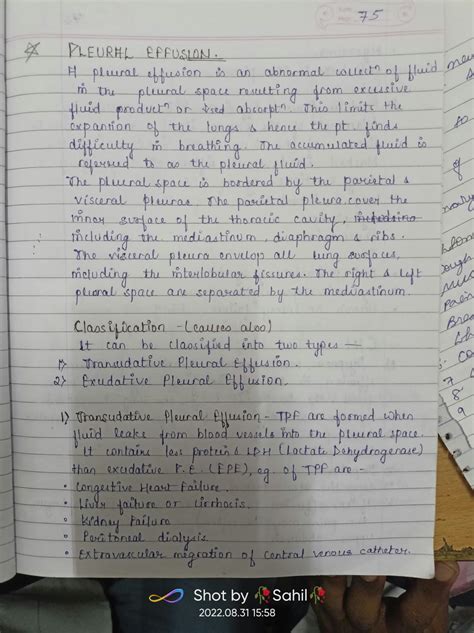 75
PLEURAL EFFUSION.
A pleural effusion is an abnormal collectn of fluid
in the pleural space resulting from excessive
fluid productn or ↓sed absorptn. This limits the
expantion of the lungs & hence the pt. finds
difficulty in breathing. The accumulated fluid is
referred to as the pleural fluid.
The pleural space is bordered by the parietal &
visceral pleuras. The parietal pleura cover the
inner surface of the thoracic cavity,
including the mediastinum, diaphragm & ribs.
The visceral pleura envelop all lung surfaces,
including the interlobular fissures. The right & left
pleural space are separated by the mediastinum.
Classification - (causes also)
It can be classified into two types —
1) Transudative Pleural Effusion.
2) Exudative Pleural Effusion.
1) Transudative Pleural Effusion - TPF are formed when
fluid leaks from blood vessels into the pleural space.
It contains less protein & LDH (Lactate Dehydrogenase)
than exudative P.E. (EPE), eg. of TPF are -
• Congestive Heart Failure.
• Liver failure or cirrhosis.
• Kidney Failure
• Peritoneal dialysis.
• Extravascular migration of central venous catheter.
Shot by Sahil
2022.08.31 15:58